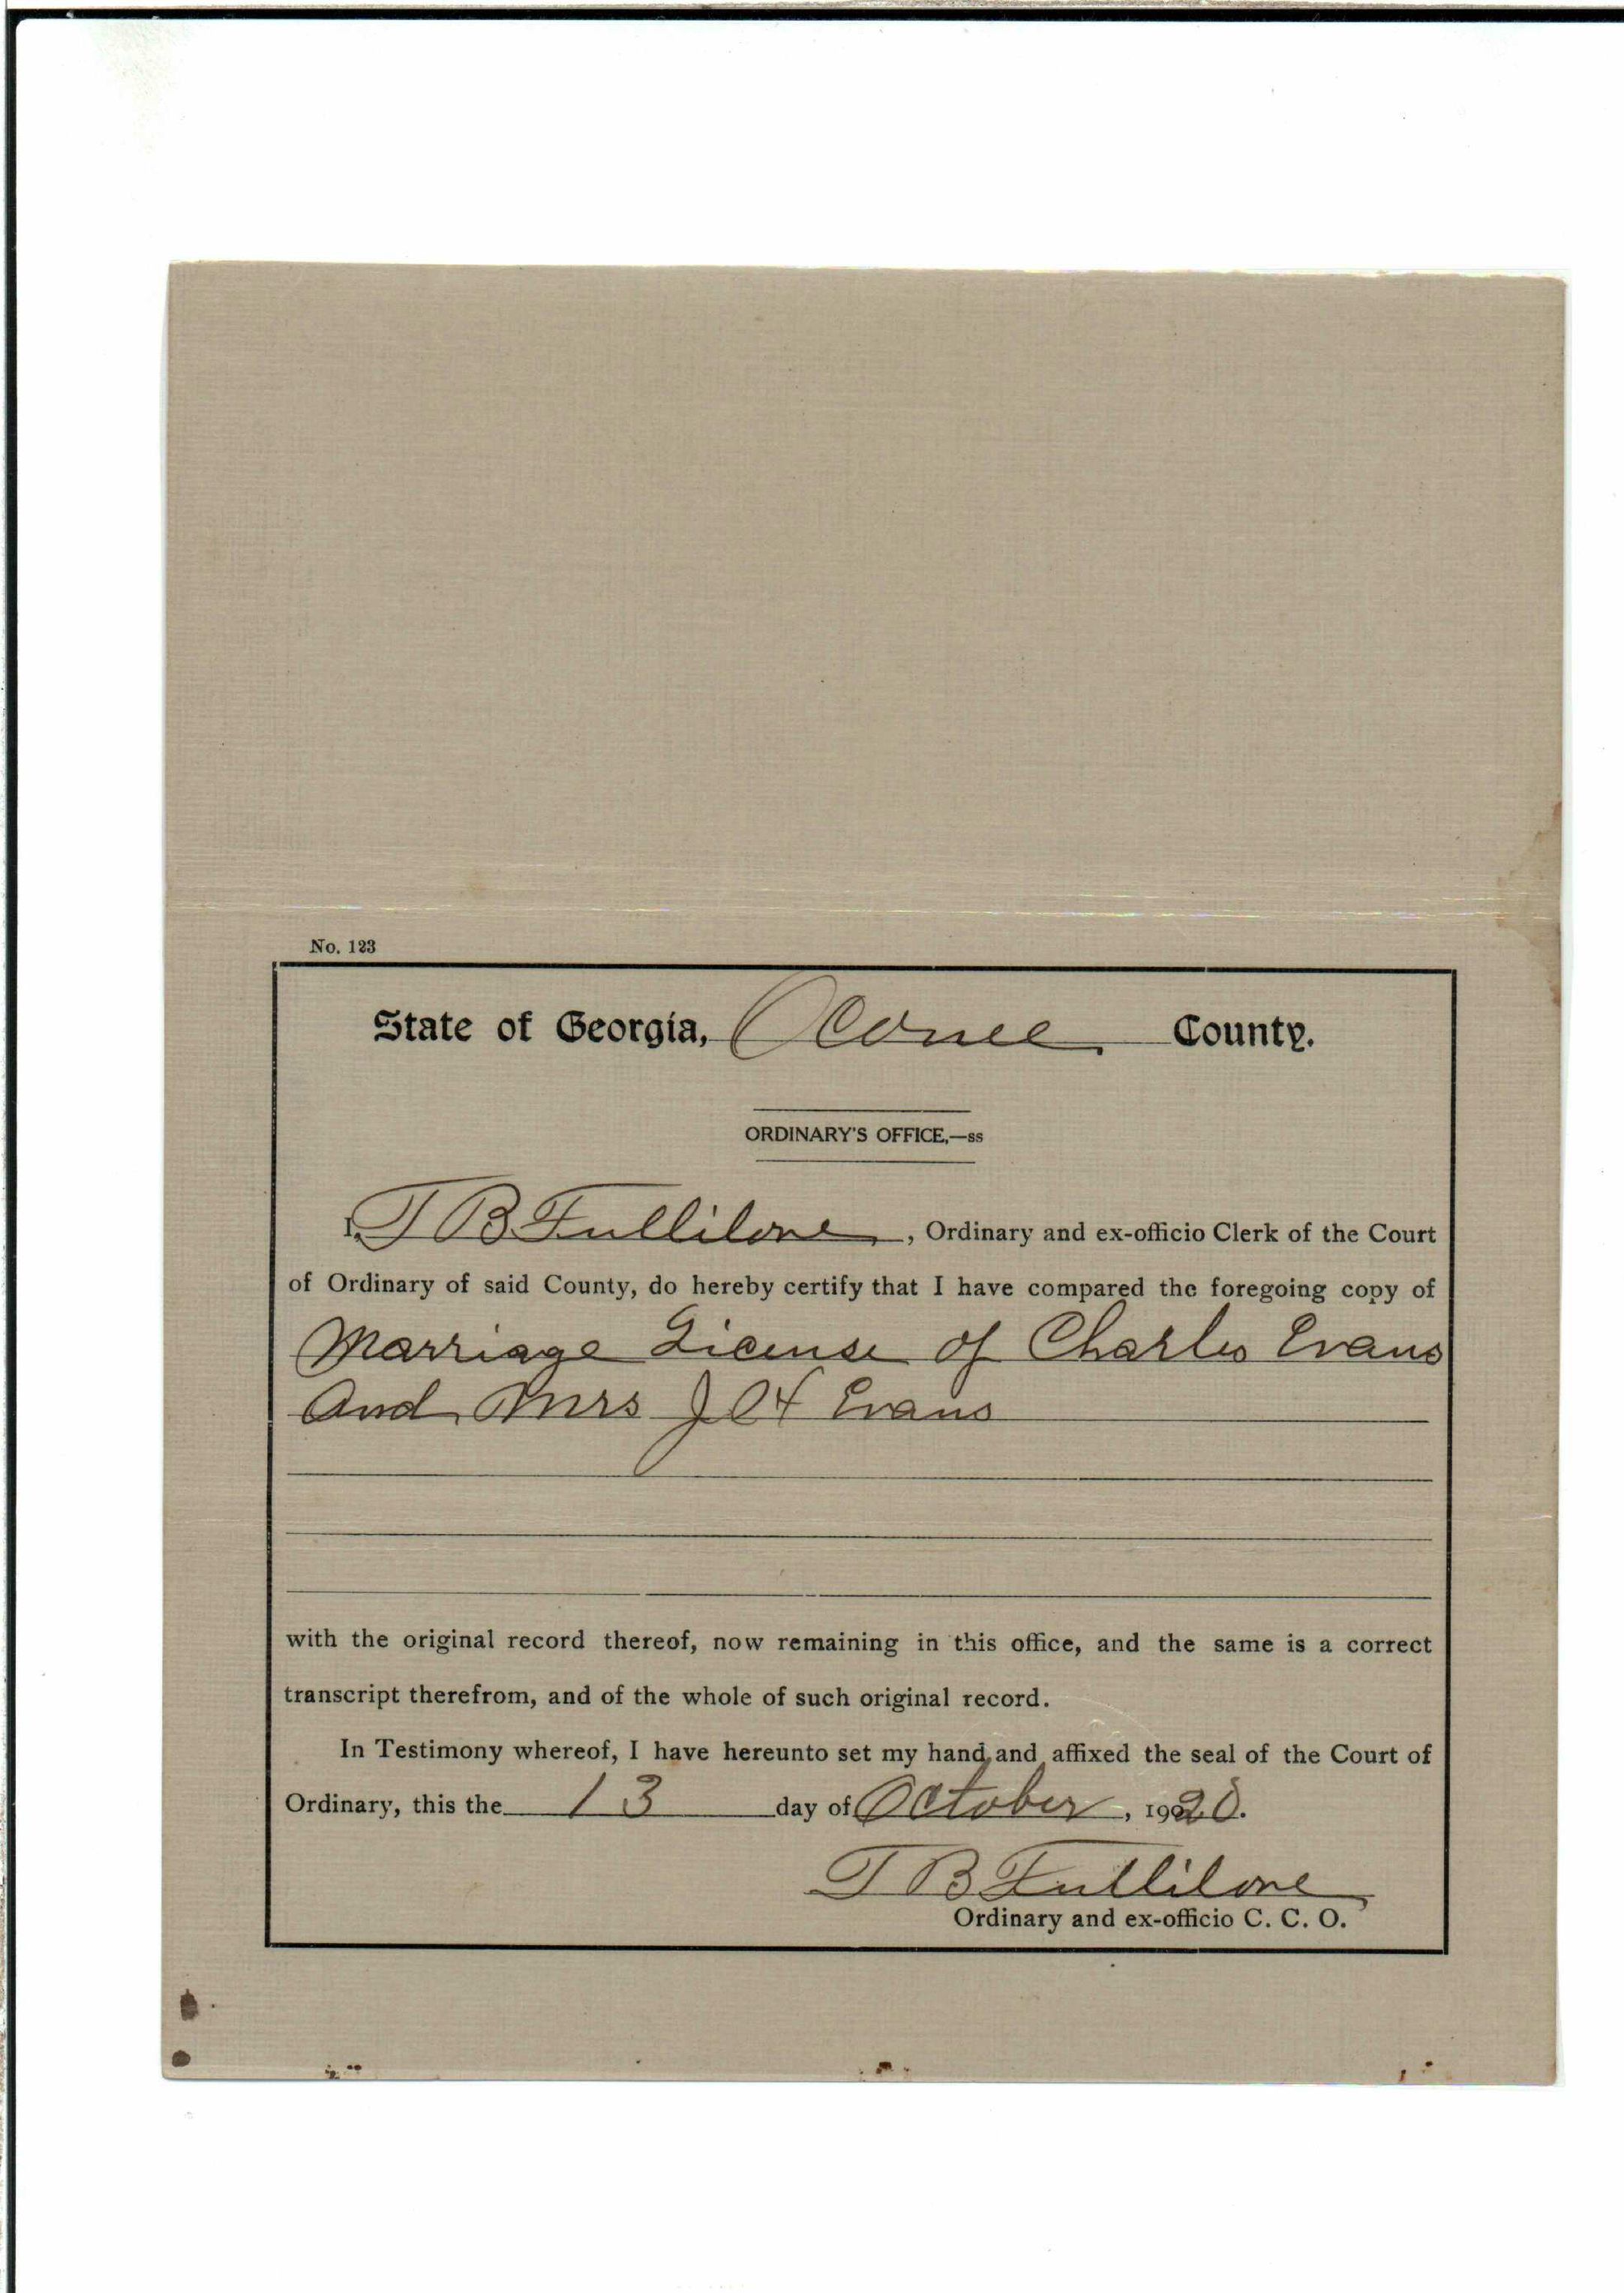 No. 123
State of Georgia, Oconee County.
ORDINARY'S OFFICE,—ss
I, T B Fullilove, Ordinary and ex-officio Clerk of the Court
of Ordinary of said County, do hereby certify that I have compared the foregoing copy of
Marriage License of Charles Evans
And Mrs J H Evans
with the original record thereof, now remaining in this office, and the same is a correct
transcript therefrom, and of the whole of such original record.
In Testimony whereof, I have hereunto set my hand and affixed the seal of the Court of
Ordinary, this the 13 day of October, 1920.
T B Fullilove
Ordinary and ex-officio C. C. O.